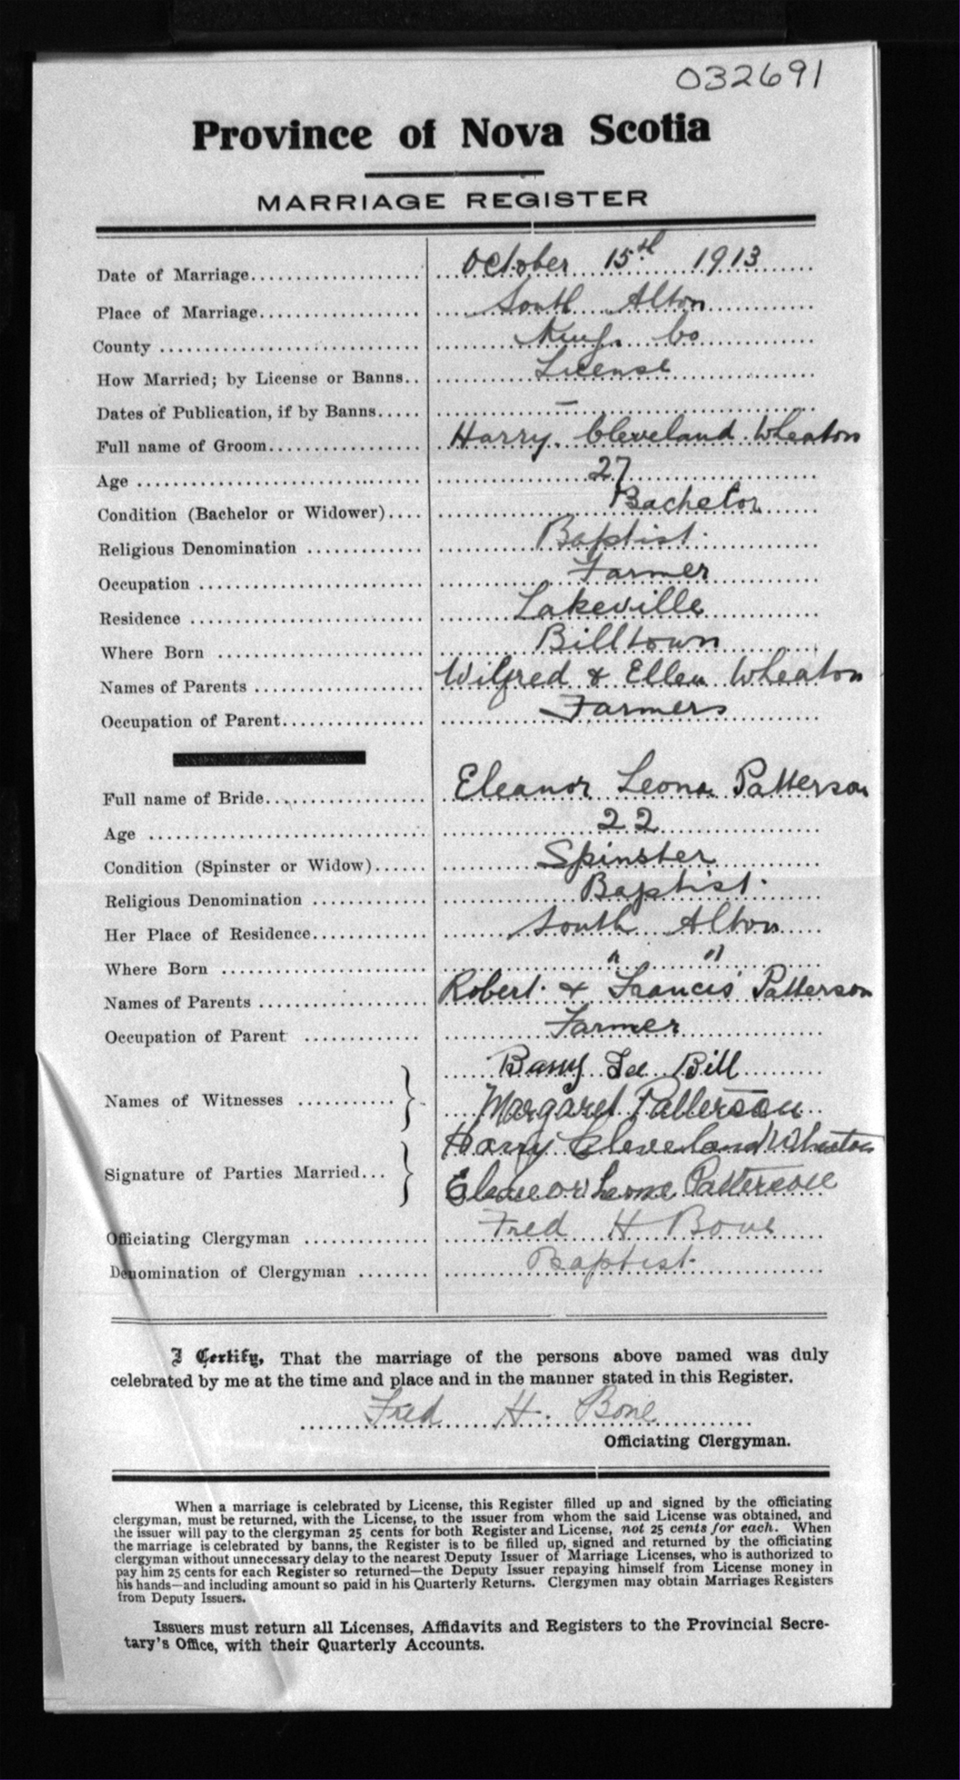 032691
Province of Nova Scotia
MARRIAGE REGISTER
Date of Marriage.................... October 15th 1913
Place of Marriage.................. South Alton
County ............................. Kings Co
How Married; by License or Banns.. License
Dates of Publication, if by Banns..... —
Full name of Groom.................. Harry Cleveland Wheaton
Age ................................ 27
Condition (Bachelor or Widower).... Bachelor
Religious Denomination ............. Baptist.
Occupation ......................... Farmer
Residence .......................... Lakeville
Where Born ........................ Billtown
Names of Parents ................... Wilfred & Ellen Wheaton
Occupation of Parent................ Farmers
Full name of Bride.................. Eleanor Leona Patterson
Age ................................ 22
Condition (Spinster or Widow)...... Spinster
Religious Denomination ............. Baptist.
Her Place of Residence.............. South Alton
Where Born ........................ " "
Names of Parents ................... Robert & Francis Patterson
Occupation of Parent .............. Farmer
Names of Witnesses ........... Lee Bill
Margaret Patterson
Signature of Parties Married... Harry Cleveland Wheaton
Eleanor Leona Patterson
Officiating Clergyman .............. Fred H Bone
Denomination of Clergyman ........ Baptist.
I Certify, That the marriage of the persons above named was duly
celebrated by me at the time and place and in the manner stated in this Register.
Fred H. Bone
Officiating Clergyman.
When a marriage is celebrated by License, this Register filled up and signed by the officiating
clergyman, must be returned, with the License, to the issuer from whom the said License was obtained, and
the issuer will pay to the clergyman 25 cents for both Register and License, not 25 cents for each. When
the marriage is celebrated by banns, the Register is to be filled up, signed and returned by the officiating
clergyman without unnecessary delay to the nearest Deputy Issuer of Marriage Licenses, who is authorized to
pay him 25 cents for each Register so returned—the Deputy Issuer repaying himself from License money in
his hands—and including amount so paid in his Quarterly Returns. Clergymen may obtain Marriages Registers
from Deputy Issuers.
Issuers must return all Licenses, Affidavits and Registers to the Provincial Secre-
tary's Office, with their Quarterly Accounts.